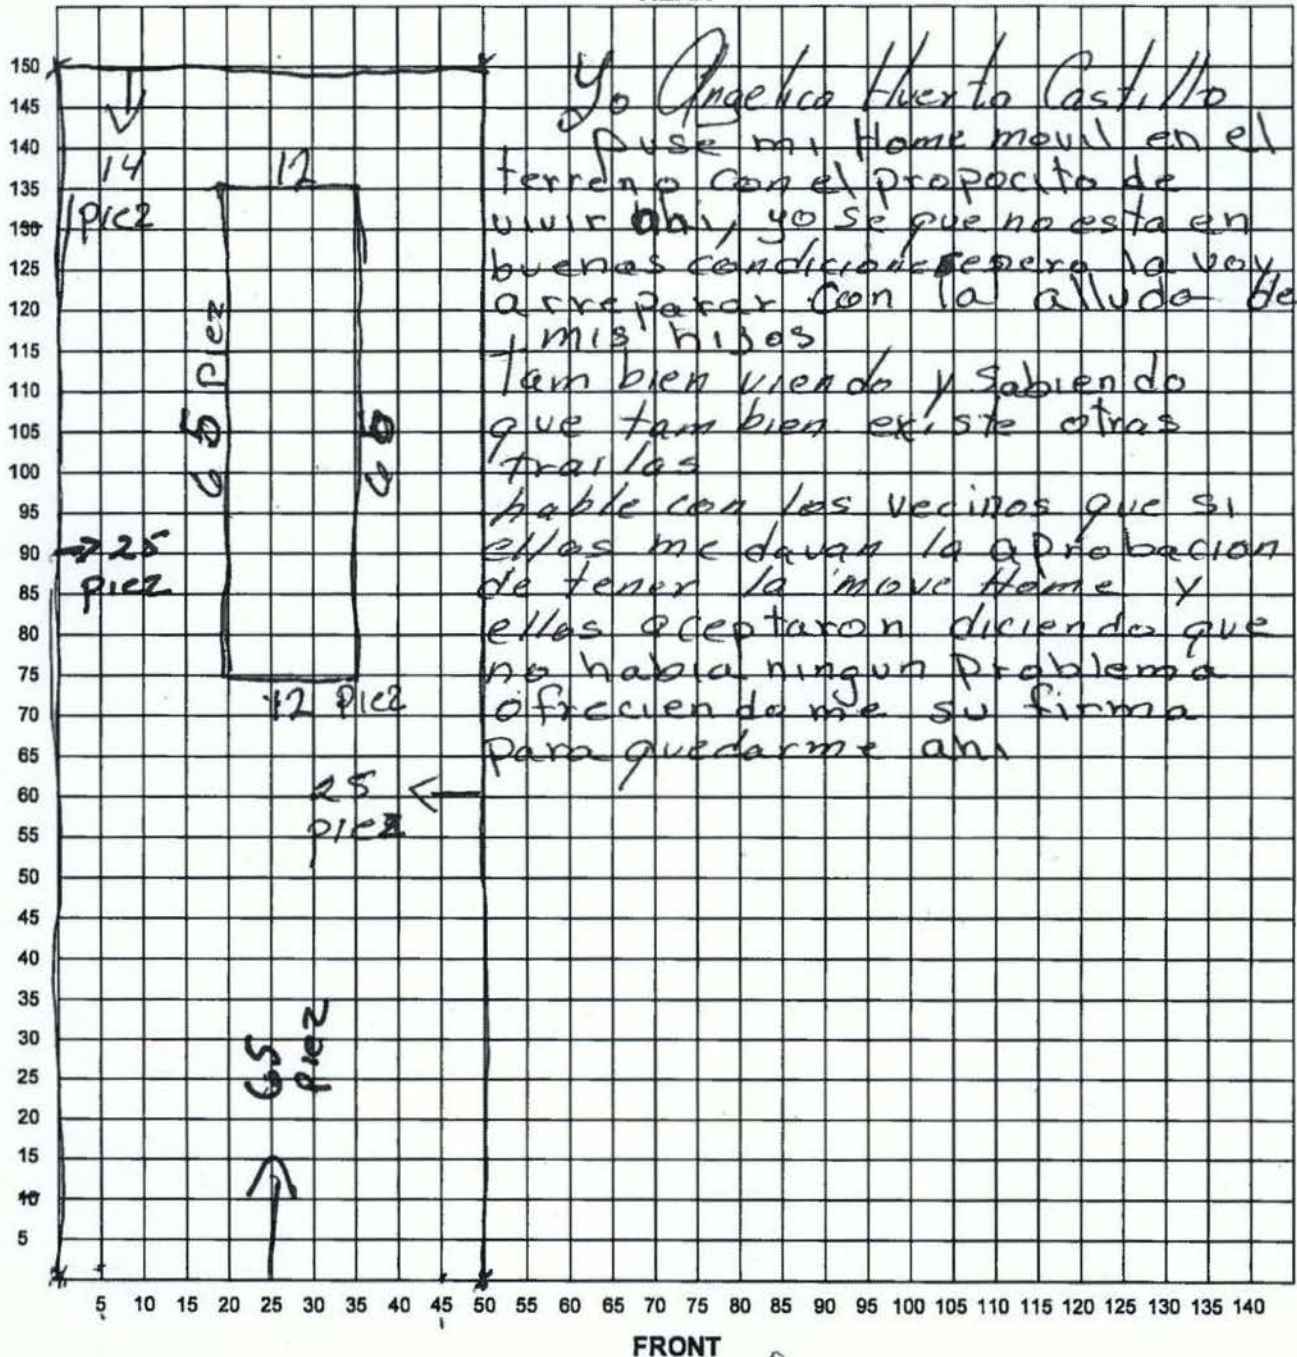 150
145
140
135
130
125
120
115
110
105
100
95
90
85
80
75
70
65
60
55
50
45
40
35
30
25
20
15
10
5
14
piez
12
65 piez
65
25
piez
12 piez
25
piez
65
piez
Yo Angelica Huerta Castillo
Puse mi Home movil en el
terreno con el propocito de
vivir ahi, yo se que no esta en
buenas condiciones pero la voy
arreparar con la alluda de
mis hijos
Tam bien viendo y Sabiendo
que tam bien existe otras
trailas
hable con los vecinos que si
ellos me davan la aprobacion
de tener la move Home y
ellos aceptaron diciendo que
no habia ningun Problema
ofreciendo me su firma
para quedarme ahi
5 10 15 20 25 30 35 40 45 50 55 60 65 70 75 80 85 90 95 100 105 110 115 120 125 130 135 140
FRONT